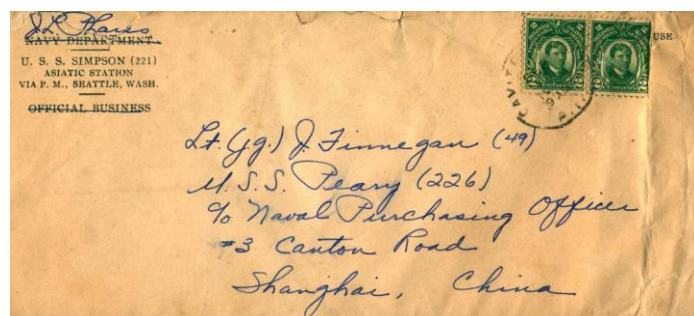 J. L. Phares
NAVY DEPARTMENT
U. S. S. SIMPSON (221)
ASIATIC STATION
VIA P. M., SEATTLE, WASH.
OFFICIAL BUSINESS
USE
Lt. (jg.) J. Finnegan (49)
U.S.S. Peary (226)
c/o Naval Purchasing Officer
#3 Canton Road
Shanghai, China